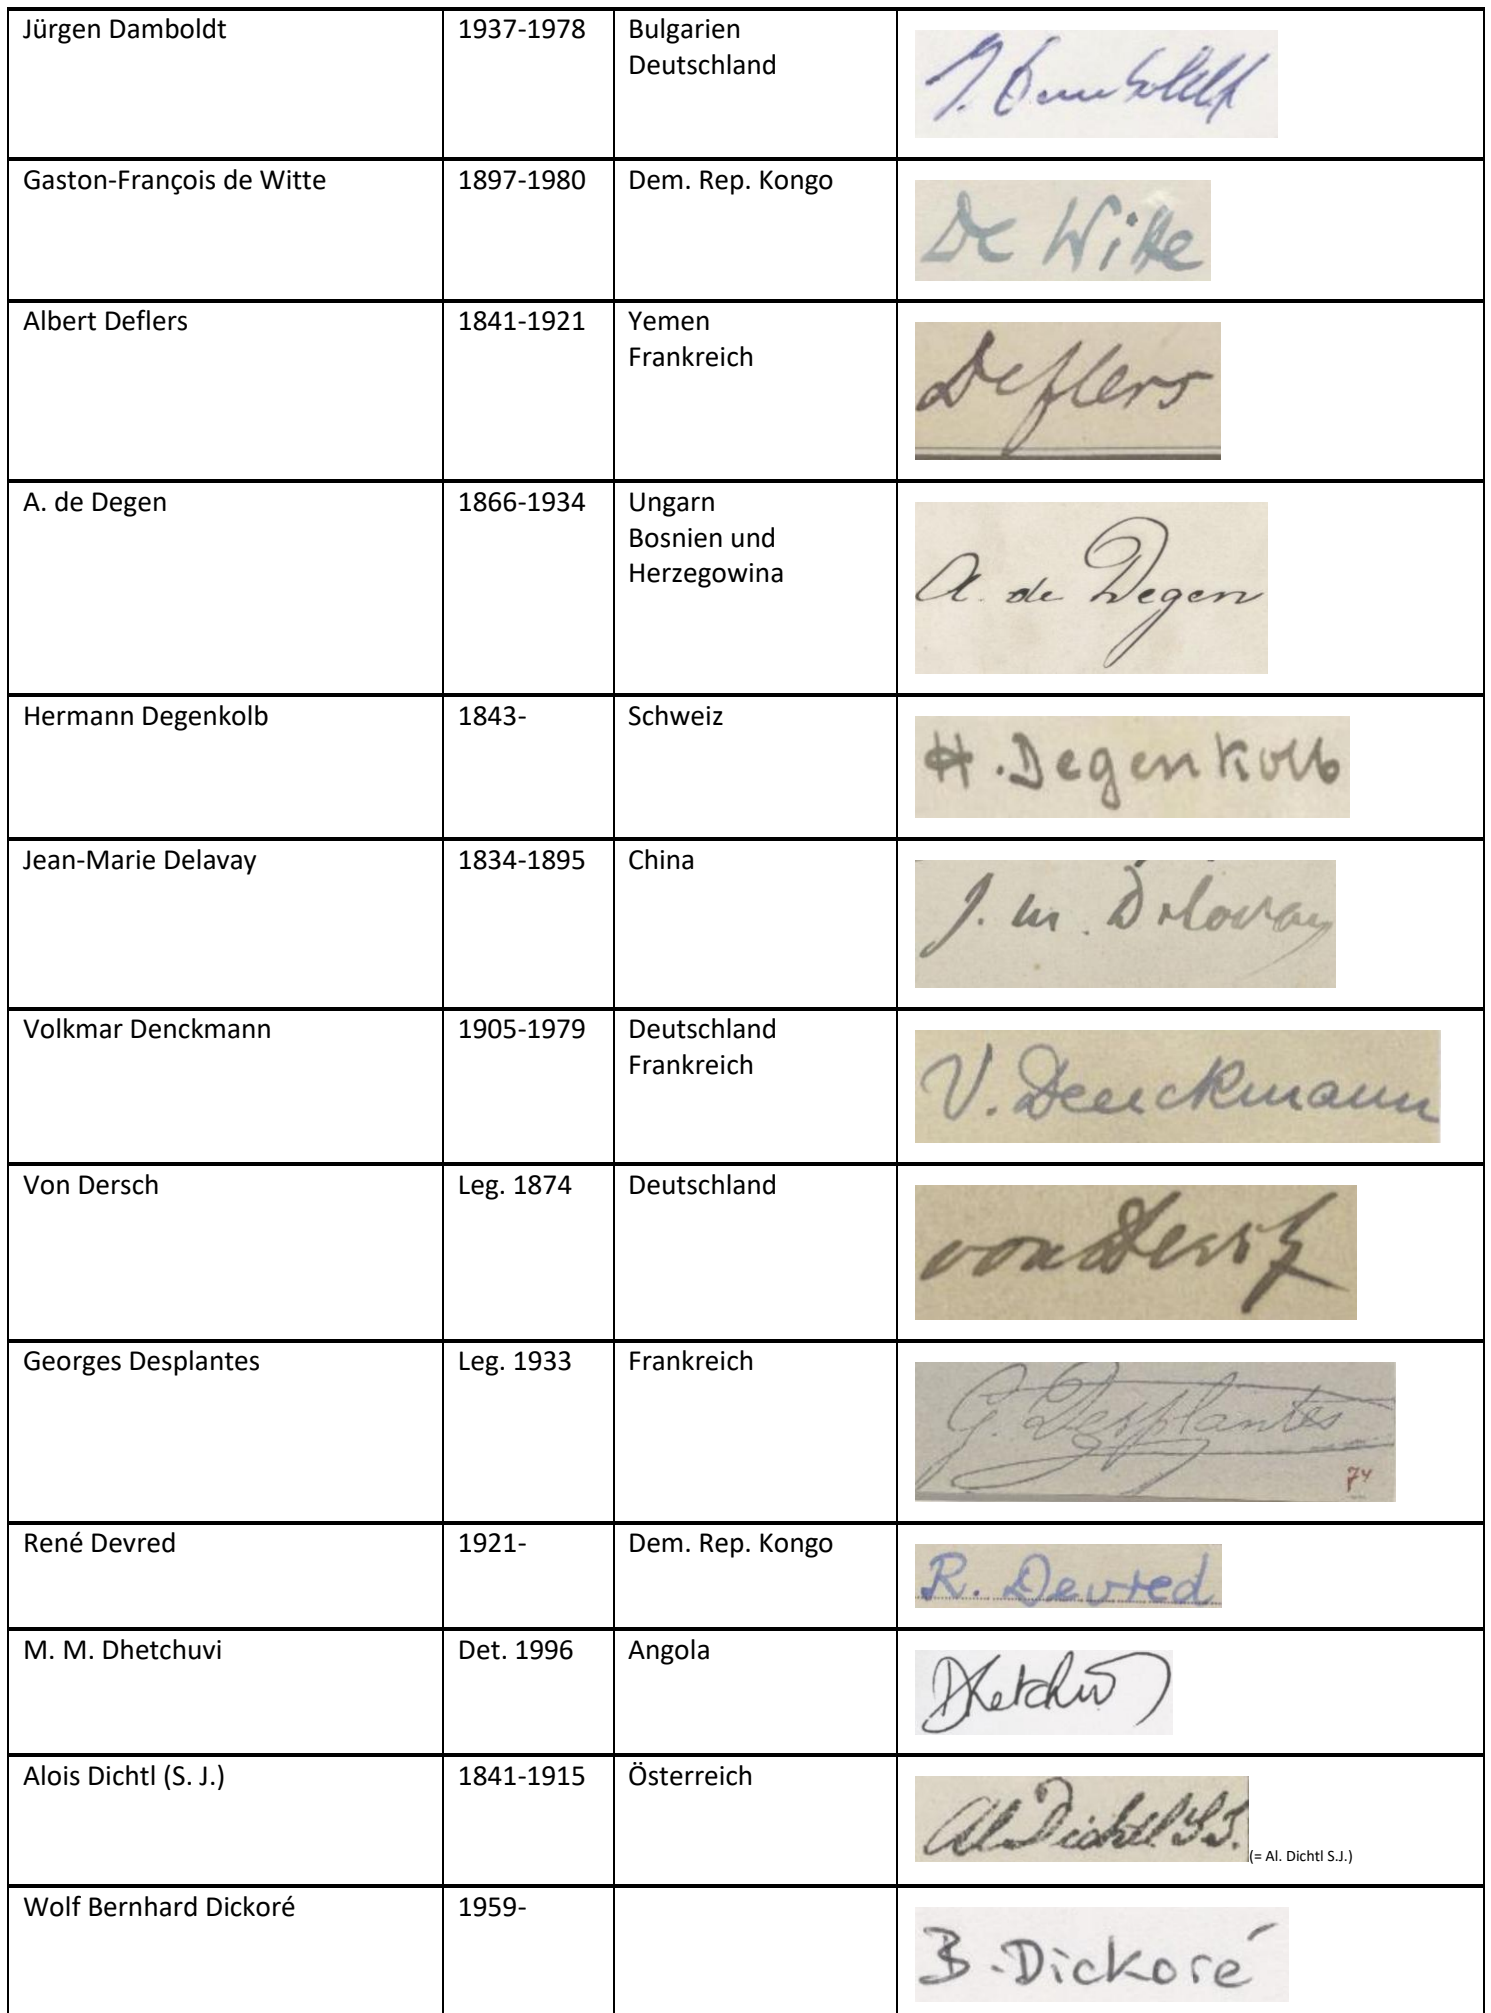 Jürgen Damboldt 1937-1978 Bulgarien
Deutschland
J. Damboldt
Gaston-François de Witte 1897-1980 Dem. Rep. Kongo
De Witte
Albert Deflers 1841-1921 Yemen
Frankreich
Deflers
A. de Degen 1866-1934 Ungarn
Bosnien und
Herzegowina
A. de Degen
Hermann Degenkolb 1843- Schweiz
H. Degenkolb
Jean-Marie Delavay 1834-1895 China
J. M. Delavay
Volkmar Denckmann 1905-1979 Deutschland
Frankreich
V. Denckmann
Von Dersch Leg. 1874 Deutschland
von Dersch
Georges Desplantes Leg. 1933 Frankreich
G. Desplantes
74
René Devred 1921- Dem. Rep. Kongo
R. Devred
M. M. Dhetchuvi Det. 1996 Angola
Dhetchuvi
Alois Dichtl (S. J.) 1841-1915 Österreich
Al. Dichtl S.J. (= Al. Dichtl S.J.)
Wolf Bernhard Dickoré 1959-
B. Dickoré